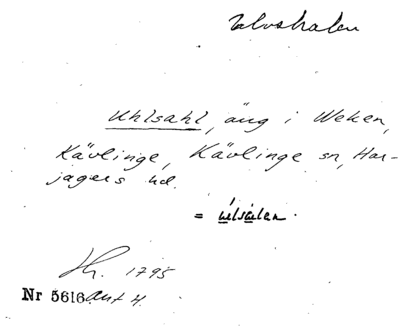 Ulvshalen
Uhlsahl, äng i Weken,
Kävlinge, Kävlinge sn, Har-
jagers hd.
= úlsálen.
Kr. 1795
Nr 5616 akt 4.